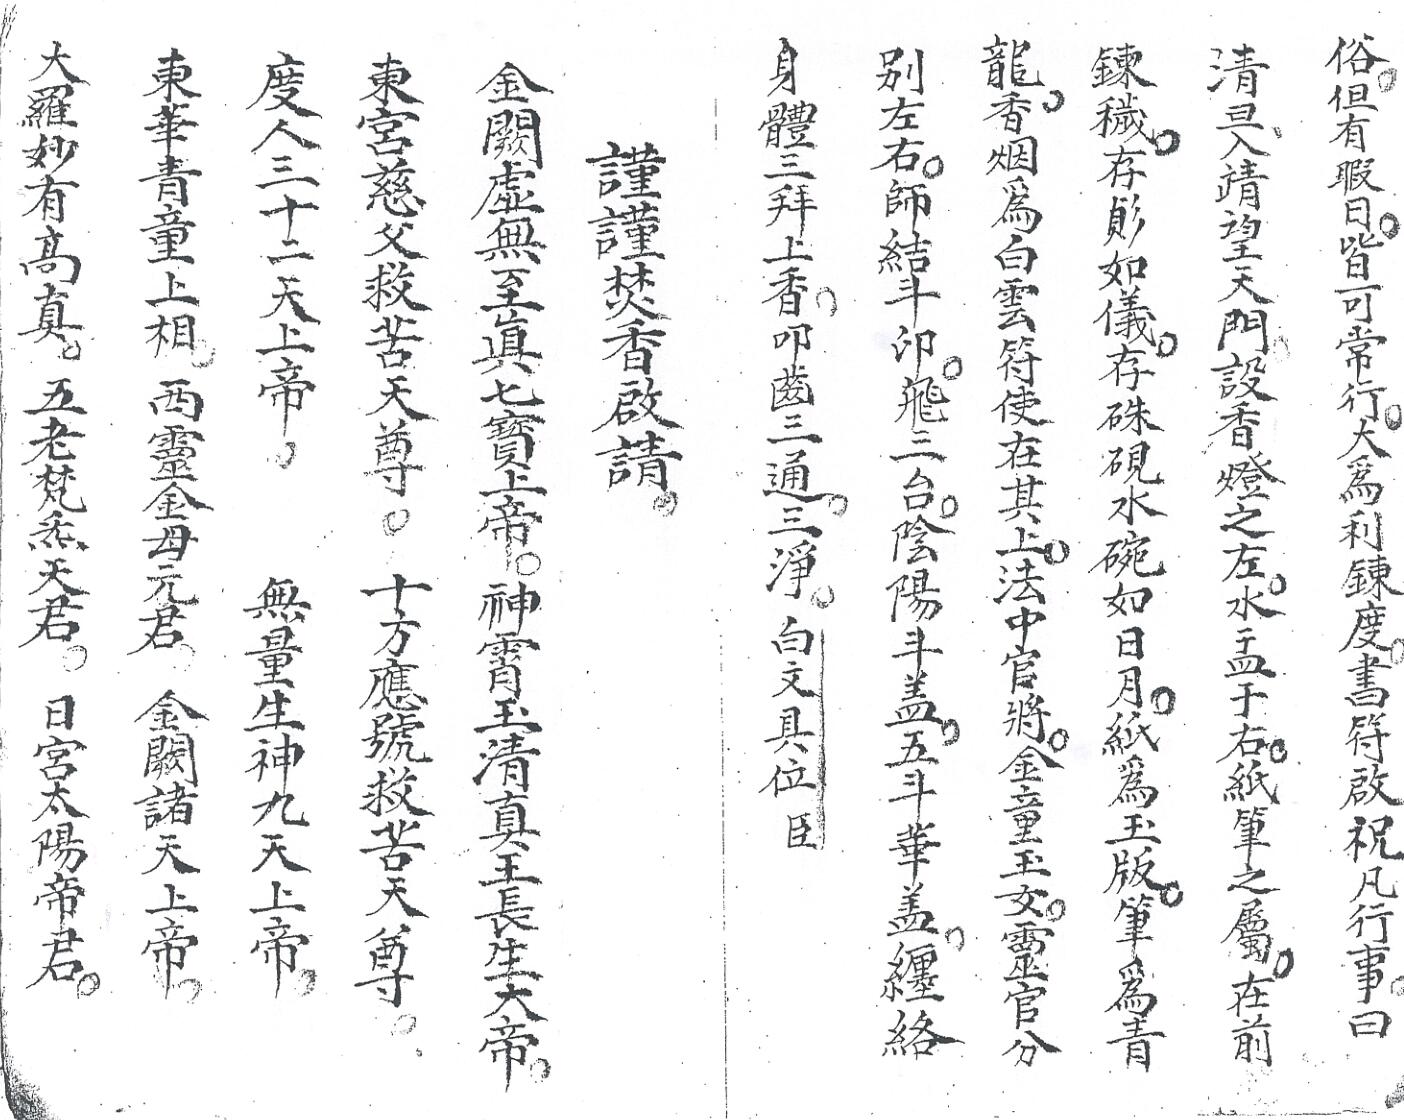 俗。但有暇日。皆可常行。大為利鍊度。書符啟祝凡行事。曰
清旦、入靖望天門。設香燈之左。水盂于右。紙筆之屬。在前
鍊穢。存䰟如儀。存硃硯水碗如日月。紙為玉版。筆為青
龍。香烟為白雲符使在其上。法中官將。金童玉女。靈官分
别左右。師結斗印。飛三台。陰陽斗盖。五斗華盖。纏絡
身體三拜上香。叩齒三通。三淨。白文具位臣
謹謹焚香啟請。
金闕虛無至真七寶上帝。神霄玉清真王長生大帝。
東宮慈父救苦天尊。十方應號救苦天尊。
度人三十二天上帝。無量生神九天上帝。
東華青童上相。西靈金母元君。金闕諸天上帝。
大羅妙有高真。五老梵炁天君。日宮太陽帝君。